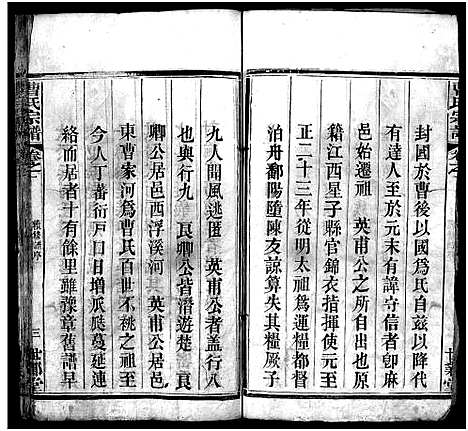 曹氏宗譜
卷之
封國於曹後以國爲氏自茲以降代
有達人至於元末有諱守信者卽麻
邑始遷祖 英甫公之所自出也原
籍江西星子縣官錦衣指揮使元至
正二十三年從明太祖爲運糧都督
泊舟鄱陽隍陳友諒算失其糧厥子
九人聞風逃匿 英甫公者蓋行八
也與行九 良卿公皆潛遊楚 良
卿公居邑西浮溪河 英甫公居邑
東曹家河爲曹氏百世不祧之祖至
今人丁蕃衍戸口日增瓜瓞蔓延連
絡而居者十有餘里雖豫章舊譜早
曹氏宗譜
卷之
三